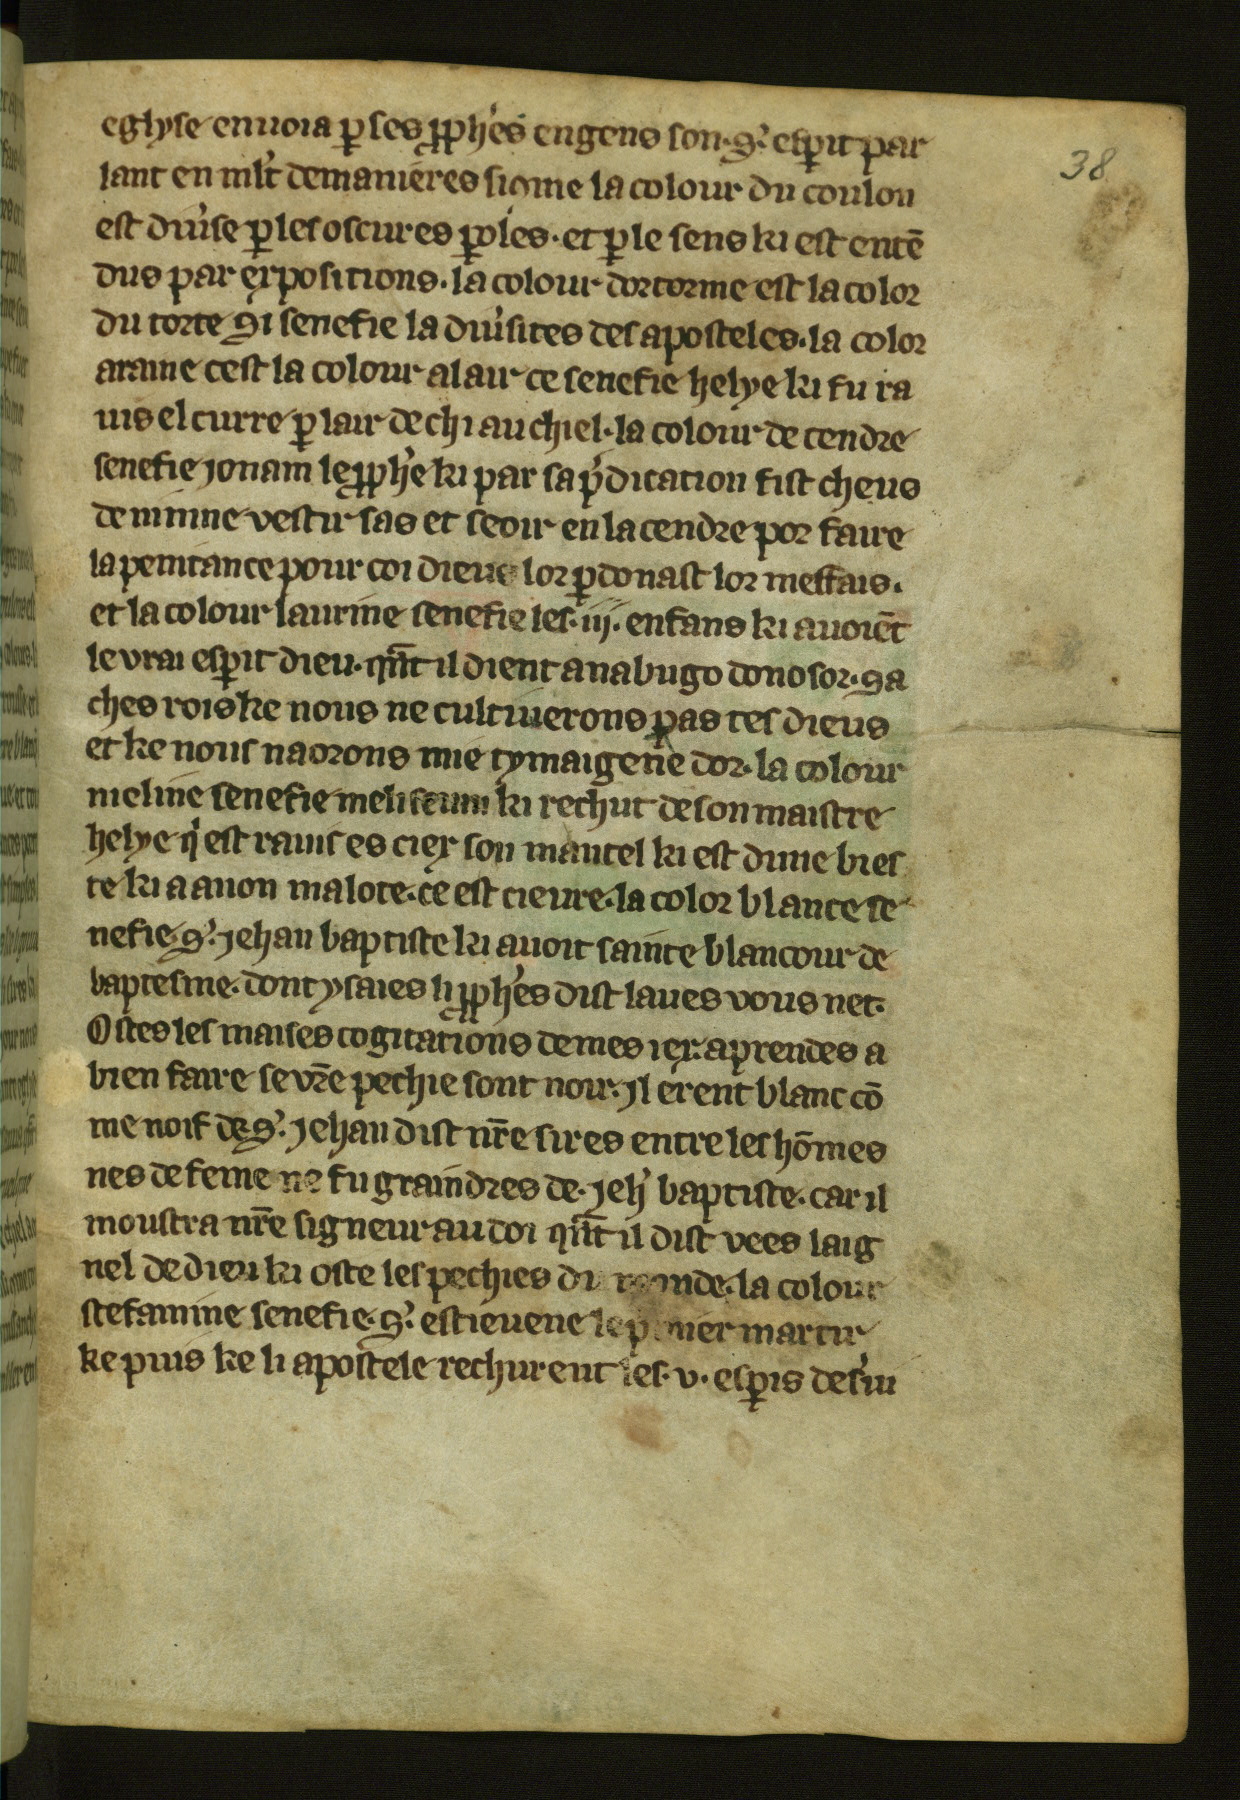 38
eglyse enuoia ꝑ ses ꝓph'es en gens son .S'. esꝑit par
lant en ml't de manieres si ɔme la colour du coulon
est diu'se ꝑ les oscures ꝑoles. et ꝑ le sens ki est entē
dus par expositions. la colour dortorine est la color
du torte Si senefie la diu'sites des aposteles. la color
araine cest la colour al air ce senefie helye ki fu ra
uis el curre ꝑ lair de chi au chiel. la colour de cendre
senefie jonam le ꝓph'e ki par sa p'dication fist cheus
de niniue vestir sas et seoir en la cendre por faire
la penitance pour coi dieus lor ꝑdonast lor meffais.
et la colour laurine senefie les .iij. enfans ki auoiēt
le vrai esꝑit dieu. qn̄t il dient a nabugodonosor. Sa
ches rois ke nous ne cultiuerons pas tes dieus
et ke nous naorons mie tymaigene dor. la colour
meline senefie meliseum ki rechut de son maistre
helye q' est rauis es ciex son mantel ki est dune bies
te ki a a non malote. ce est cieure. la color blance se
nefie .S'. jehan baptiste ki auoit sainte blancour de
baptesme. dont ysaies li ꝓph'es dist laues vous net.
Ostes les maises cogitations de mes iex. aprendes a
bien faire se vr̄e pechie sont noir. jl erent blanc cō
me noif de .S'. jehan dist nr̄e sires entre les hōmes
nes de feme ne fu graindres de jeh' baptiste. car il
moustra nr̄e signeur au doi qn̄t il dist vees laig
nel de dieu ki oste les pechies du monde. la colour
stefanine senefie .S'. estieuene le p'mier martir
ke puis ke li apostele rechurent les .v. esꝑis de s'ui